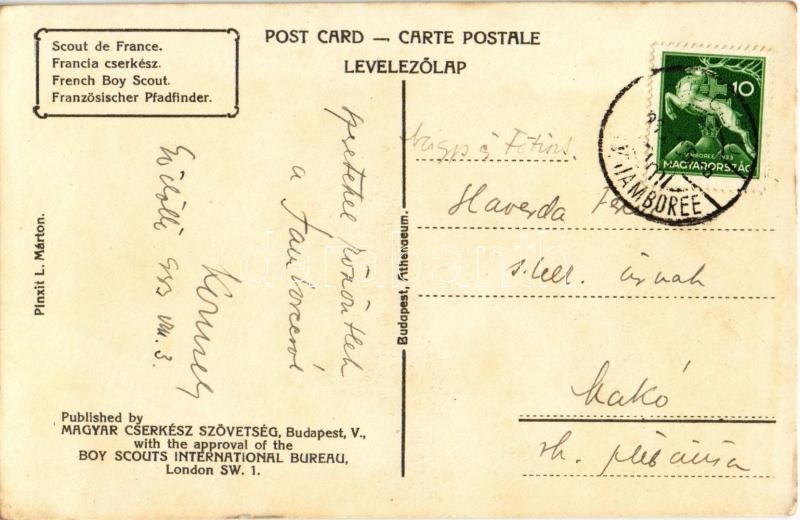 POST CARD — CARTE POSTALE
LEVELEZŐLAP
Scout de France.
Francia cserkész.
French Boy Scout.
Französischer Pfadfinder.
10
JAMBOREE 1933
MAGYARORSZÁG
JAMBOREE
szeretettel
a Jamboreeról
Gödöllő 933 VIII. 3.
Haverda
úrnak
Makó
Pinxit L. Márton.
Budapest, Athenaeum.
darabanth
Published by
MAGYAR CSERKÉSZ SZÖVETSÉG, Budapest, V.,
with the approval of the
BOY SCOUTS INTERNATIONAL BUREAU,
London SW. 1.